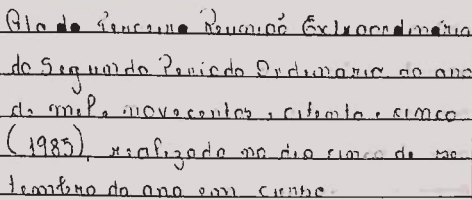 Ata da Terceira Reunião Extraordinária
do Segundo Periodo Ordinario do ano
de mil e novecentos e oitenta e cinco
(1985), realizada no dia cinco de se
tembro do ano em